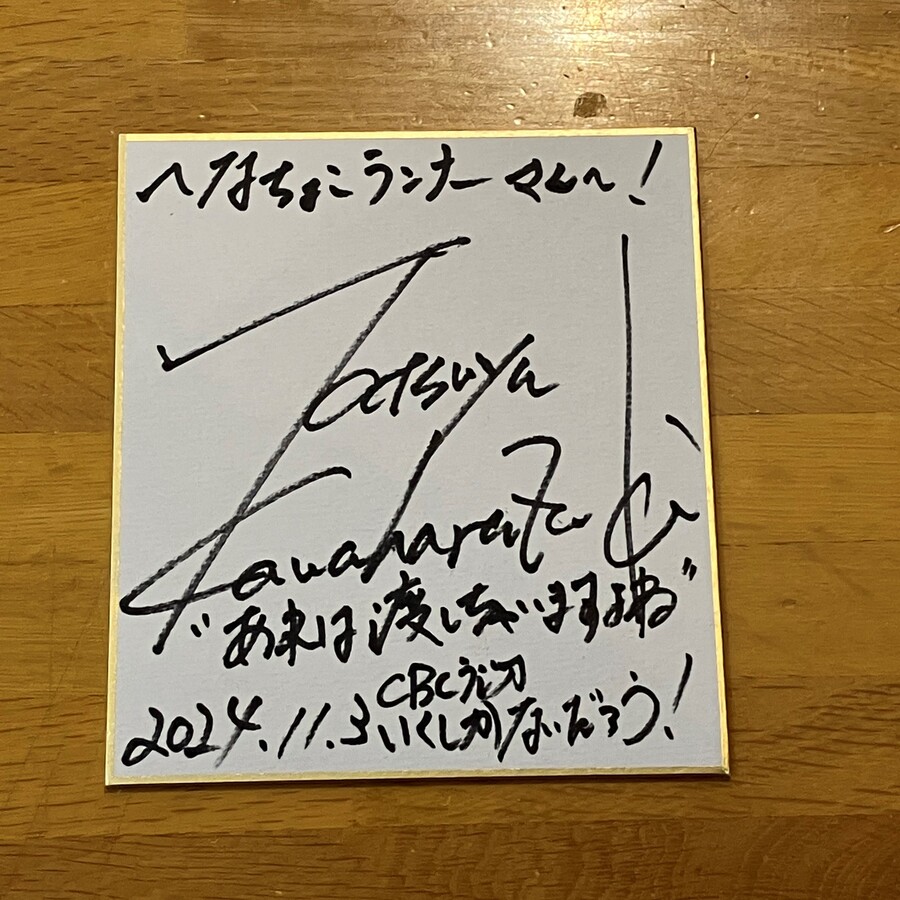 へなちょこランナー さんへ!
Tatsuya
Kawahara
"あれは渡しちゃいますよね"
CBCラジオ
2024.11.3 いくしかないだろう!